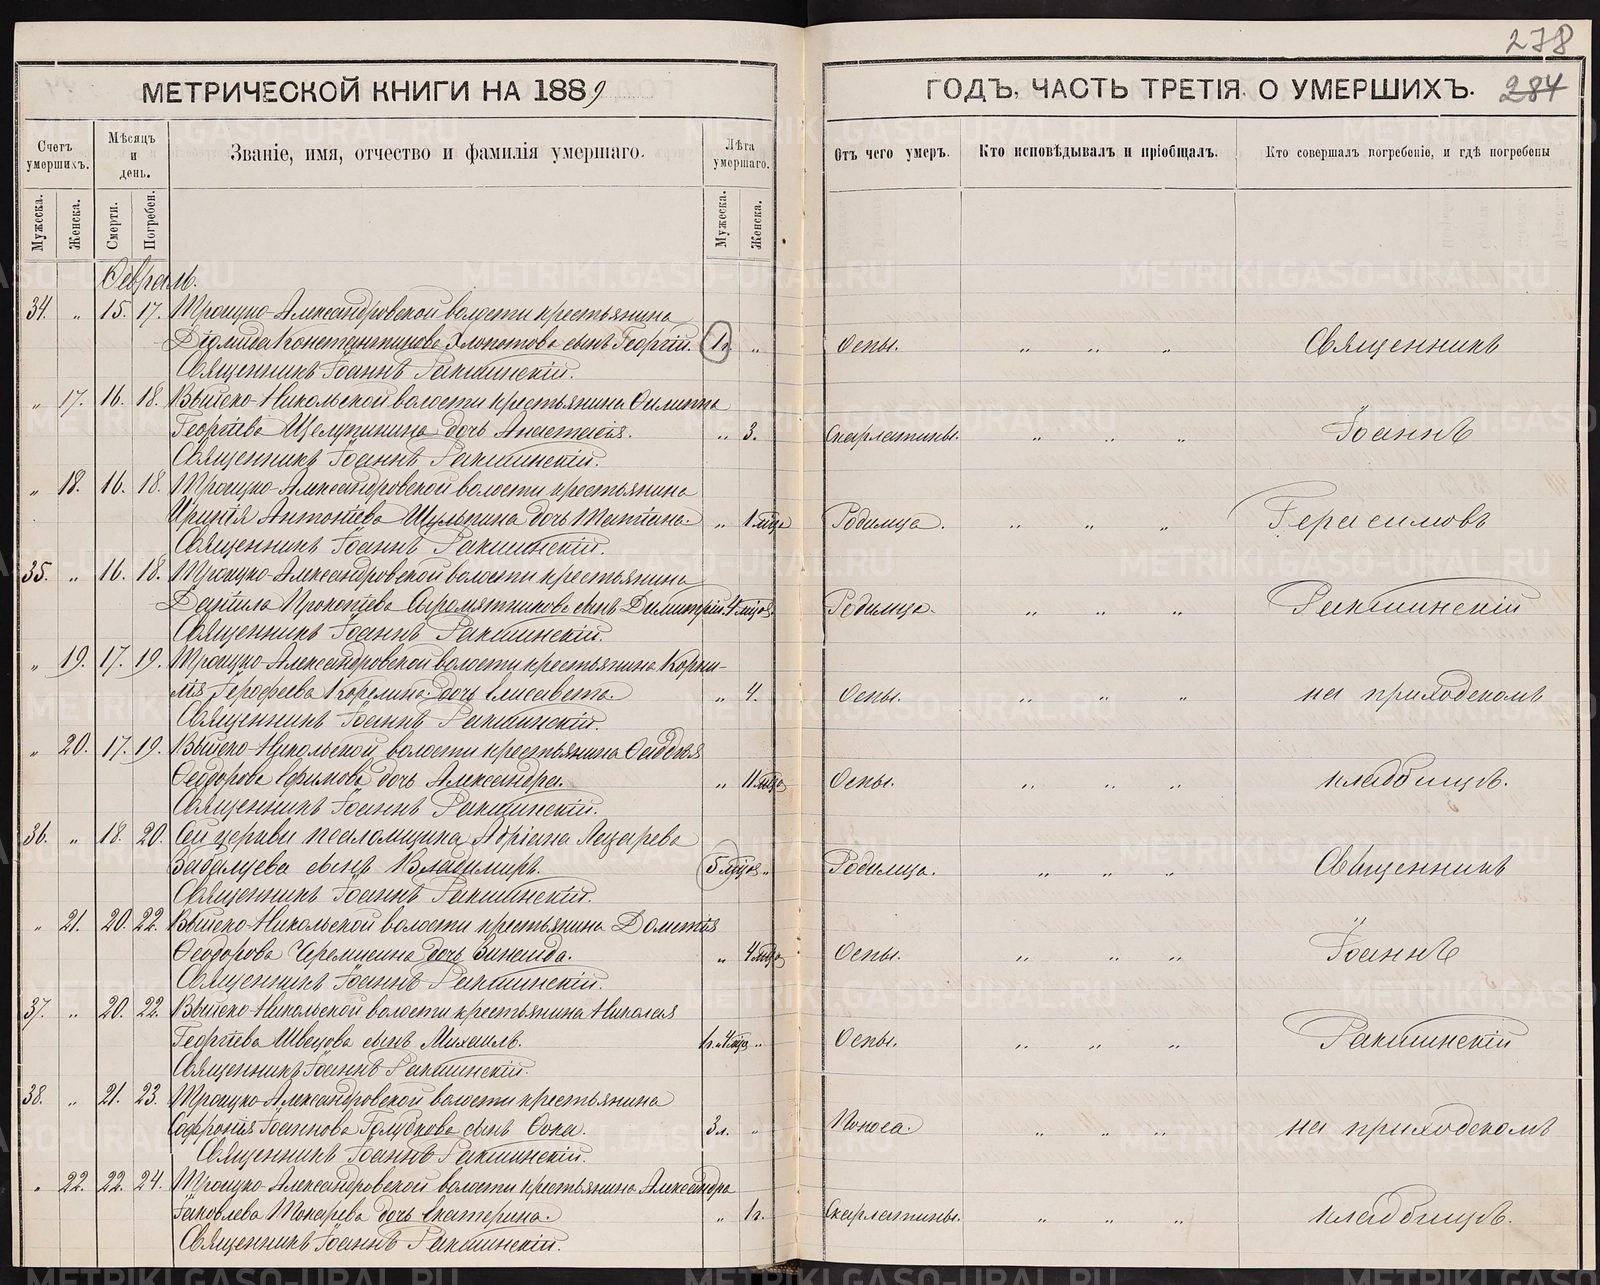 278
МЕТРИЧЕСКОЙ КНИГИ НА 1889 ГОДЪ, ЧАСТЬ ТРЕТІЯ О УМЕРШИХЪ. 284
Счетъ умершихъ. Мѣсяцъ и день. Званіе, имя, отчество и фамилія умершаго. Лѣта умершаго. Отъ чего умеръ. Кто исповѣдывалъ и пріобщалъ. Кто совершалъ погребеніе, и гдѣ погребены
Мужеска. Женска. Смерти. Погребен. Мужеска. Женска.
Февраль.
34. „ 15. 17. Троицко-Александровской волости крестьянина
Діомида Константинова Хлопотова сынъ Георгій. 1г. „ Оспы. „ „ „ Священникъ
Священникъ Іоаннъ Ракшинскій.
„ 17. 16. 18. Выйско-Никольской волости крестьянина Филиппа
Георгіева Щелупинина дочь Анастасія. „ 3. Скарлатины. „ „ „ Іоаннъ
Священникъ Іоаннъ Ракшинскій.
„ 18. 16. 18. Троицко-Александровской волости крестьянина
Антоніева дочь Татіана. „ 1 мца Родимца. „ „ „ Герасимовъ
Священникъ Іоаннъ Ракшинскій.
35. „ 16. 18. Троицко-Александровской волости крестьянина
Даніила Прокопіева сынъ Димитрій. 4 мцов. Родимца. „ „ „ Ракшинскій
Священникъ Іоаннъ Ракшинскій.
„ 19. 17. 19. Троицко-Александровской волости крестьянина Корни-
лія Іерофеева Корелина дочь Елисавета. „ 4. Оспы. „ „ „ на приходскомъ
Священникъ Іоаннъ Ракшинскій.
„ 20. 17. 19. Выйско-Никольской волости крестьянина
Феодорова Ефимова дочь Александра. „ 11 мцов Оспы. „ „ „ кладбищѣ.
Священникъ Іоаннъ Ракшинскій.
36. „ 18. 20. Сей церкви псаломщика Адріана Лазарева
сынъ Владимиръ. 5 мцов „ Родимца. „ „ „ Священникъ
Священникъ Іоаннъ Ракшинскій.
„ 21. 20. 22. Выйско-Никольской волости крестьянина Дометія
Феодорова Черемисина дочь Зинаида. „ 4 мцов Оспы. „ „ „ Іоаннъ
Священникъ Іоаннъ Ракшинскій.
37. „ 20. 22. Выйско-Никольской волости крестьянина Николая
Георгіева Швецова сынъ Михаилъ. 1г. 4 мцов „ Оспы. „ „ „ Ракшинскій
Священникъ Іоаннъ Ракшинскій.
38. „ 21. 23. Троицко-Александровской волости крестьянина
Софронія Іоаннова Голубкова сынъ Фока. 3л. „ Поноса. „ „ „ на приходскомъ
Священникъ Іоаннъ Ракшинскій.
„ 22. 22. 24. Троицко-Александровской волости крестьянина Александра
Іаковлева Токарева дочь Екатерина. „ 1г. Скарлатины. „ „ „ кладбищѣ.
Священникъ Іоаннъ Ракшинскій.
METRIKI.GASO-URAL.RU